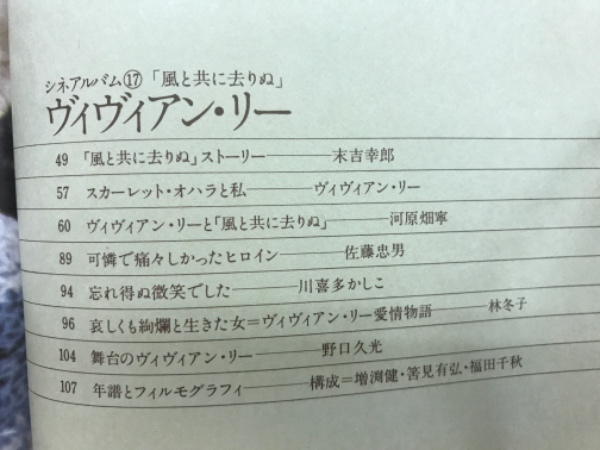 シネアルバム⑰「風と共に去りぬ」
ヴィヴィアン・リー
49 「風と共に去りぬ」ストーリー――末吉幸郎
57 スカーレット・オハラと私――ヴィヴィアン・リー
60 ヴィヴィアン・リーと「風と共に去りぬ」――河原畑寧
89 可憐で痛々しかったヒロイン――佐藤忠男
94 忘れ得ぬ微笑でした――川喜多かしこ
96 哀しくも絢爛と生きた女=ヴィヴィアン・リー愛情物語――林冬子
104 舞台のヴィヴィアン・リー――野口久光
107 年譜とフィルモグラフィ――構成=増渕健・筈見有弘・福田千秋